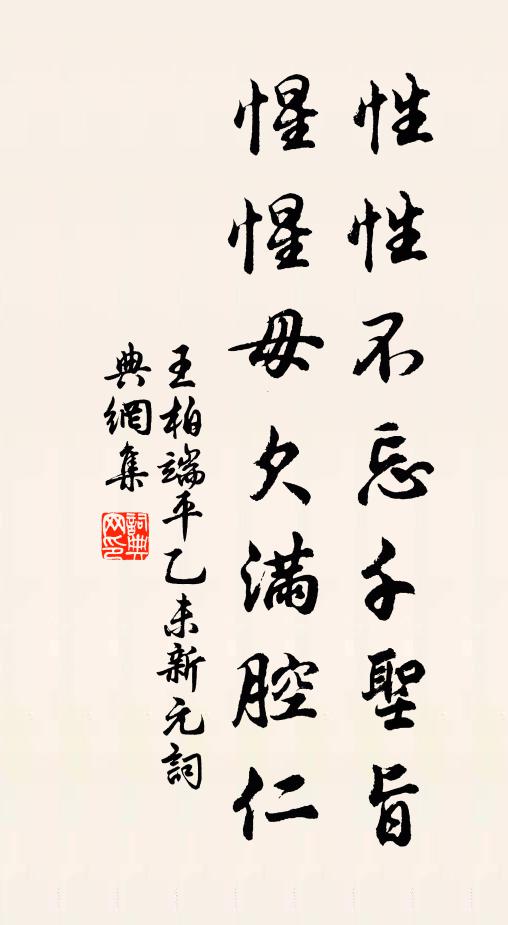 性性不忘千聖旨
惺惺毋欠滿腔仁
王柏端平乙未新元詞
典網集
詞典
网印